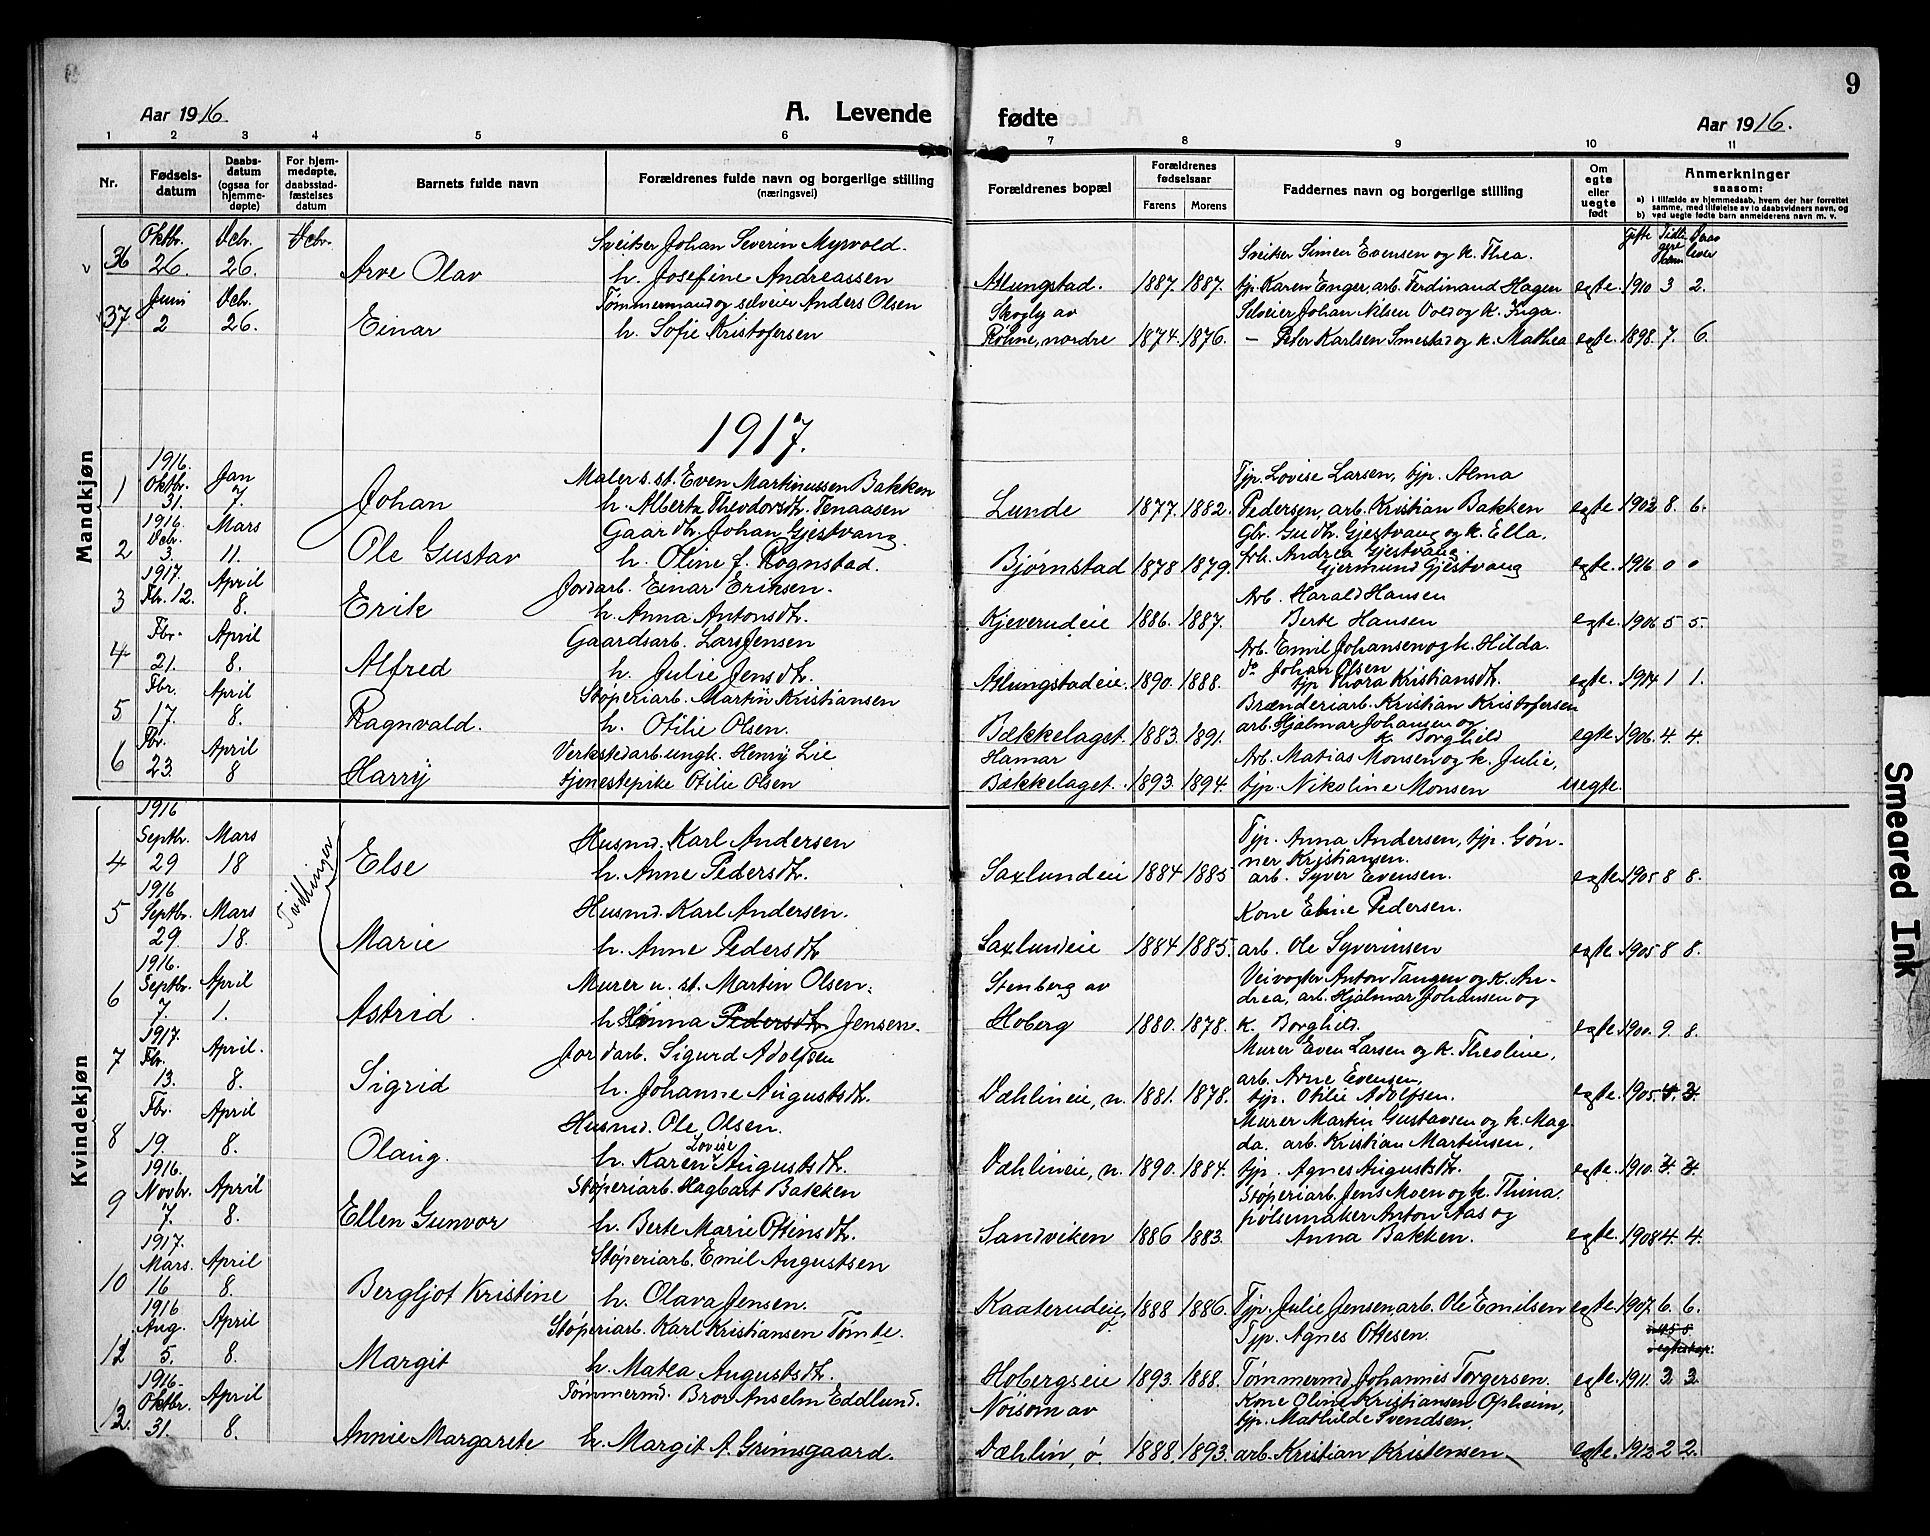 9
Aar 1916.
A. Levende fødte
Aar 1916.
1 2 3 4 5 6 7 8 9 10 11
Nr.
Fødsels-datum
Daabs-datum (ogsaa for hjemme-døpte)
For hjem-medøpte, daabsstad-fæstelses datum
Barnets fulde navn
Forældrenes fulde navn og borgerlige stilling (næringsvei)
Forældrenes bopæl
Forældrenes fødselsaar
Farens Morens
Faddernes navn og borgerlige stilling
Om egte eller uegte født
Anmerkninger saasom:
a) I tilfælde av hjemmedaab, hvem der har forrettet samme, med tilføielse av to daabsvidners navn, og
b) ved uegte fødte barn anmelderens navn m. v.
Gifte Tidligere barn Derav lever
Mandkjøn
Oktbr. Dcbr. Dcbr. Sveitser Johan Severin Myrvold. Sveitser Simen Evensen og k. Thea.
36 26. 26. Arve Olav h. Josefine Andreassen Atlungstad. 1887. 1887. tjp. Karen Enger, arb. Ferdinand Hagen egte. 1910 3 2.
Juni Dcbr. Tømmermand og selveier Anders Olsen Skogly av Selveier Johan Nilsen Vold og k. Inga.
37 2 26. Einar h. Sofie Kristofersen Røhne, nordre 1874. 1876. – Peter Karlsen Smestad og k. Mathea egte. 1898. 7. 6.
1917.
1916. Oktbr. Jan Maler s. st. Even Martinussen Bakken Tjp. Lovise Larsen, tjp. Alma
1 31. 7. Johan h. Alberta Theodorsdtr. Tenaasen Lunde 1877. 1882. Pedersen, arb. Kristian Bakken egte. 1902 8. 6.
1916. Dcbr. Mars Gaardbr. Johan Gjestvang. Gbr. Gudbr. Gjestvang og k. Ella.
2 3. 11. Ole Gustav h. Oline f. Rognstad. Bjørnstad 1878 1879. Arb. Andrea Gjestvang. Gjermund Gjestvang egte. 1916 0 0
1917. April Jordarb. Einar Eriksen. Arb. Harald Hansen
3 Fbr. 12. 8. Erik h. Anna Antonsdtr. Kjeverudeie 1886. 1887. Berte Hansen egte. 1906 5 5.
Fbr. April Gaardsarb. Lars Jensen Arb. Emil Johansen og k. Hilda.
4 21. 8. Alfred h. Julie Jensdtr. Atlungstadeie. 1890. 1888. do Johan Olsen tjp Thora Kristiansdtr. egte. 1914 1 1.
Fbr. April Støperiarb. Martin Kristiansen Brænderiarb. Kristian Kristofersen
5 17. 8. Ragnvald. h. Otilie Olsen. Bækkelaget. 1883. 1891. arb. Hjalmar Johansen og k. Borghild egte. 1906. 4. 4.
Fbr. April Verkstedarb. ungk. Henry Lie Hamar Arb. Matias Monsen og k. Julie,
6 23. 8 Harry tjenestepike Otilie Olsen Bækkelaget. 1893. 1894. tjp. Nikoline Monsen uegte.
Kvindekjøn
Tvillinger
1916 Septbr. Mars Husmd. Karl Andersen Tjp. Anna Andersen, tjp. Gøn-
4 29 18 Else h. Anne Pedersdtr. Saxlundeie 1884 1885 ner Kristiansen. arb. Syver Evensen. egte. 1905 8 8.
1916 Septbr. Mars Husmd. Karl Andersen. Kone Eline Pedersen.
5 29 18. Marie h. Anne Pedersdtr Saxlundeie 1884 1885. arb. Ole Syverinsen egte. 1905 8 8.
1916. Septbr. April Murer u. st. Martin Olsen. Stenberg av Veivogter Anton Tangen og k. An-
6 7. 1. Astrid. h. Hanna Pedersdtr Jensen. Hoberg 1880. 1878. drea, arb. Hjalmar Johansen og k. Borghild. egte. 1900. 9. 8.
1917. Fbr. April. Jordarb. Sigurd Adolfsen Murer Even Larsen og k. Theoline,
7 13. 8. Sigrid h. Johanne Augustsdtr. Dæhlineie, n. 1881. 1878. arb. Arne Evensen, tjp. Otilie Adolfsen. egte. 1905.
Fbr. April Husmd. Ole Olsen. Murer Martin Gustavsen og k. Mag-
8 19. 8. Olaug. h. Karen Lovise Augustsdtr. Dæhlineie, n. 1890. 1884. da. arb. Kristian Martinsen, tjp. Agnes Augustsdtr. egte. 1910
1916. Novbr. April Støperiarb. Hagbart Bakken Støperiarb. Jens Moen og k. Thina.
9 7. 8. Ellen Gunvor h. Berte Marie Ottinsdtr. Sandviken 1886 1883. pølsemaker Anton Aas og Anna Bakken. egte. 1908 4. 4.
1917. Mars. April Støperiarb. Emil Augustsen
10 16 8. Bergljot Kristine h. Olava Jensen. Kaaterudeie, ø. 1888 1886. Tjp. Julie Jensen arb. Ole Emilsen egte. 1907. 6. 6.
1916 Aug. April Støperiarb. Karl Kristiansen Tømte. Tjp. Agnes Ottesen.
12 5. 8. Margit h. Matea Augustsdtr. Hobergseie 1893. 1888. Tømmermd. Johannes Torgersen. egte. 1911. 3. 3.
1916. Oktbr. April Tømmermd. Bror Anselm Eddlund. Nöisom av Kone Oline Kristiansen Opheim,
12. 31. 8. Annie Margarete h. Margit A. Grimsgaard. Dæhlin, ø 1888. 1893. tjp. Mathilde Svendsen, arb. Kristian Kristensen egte. 1912 2 2.
Smeared Ink